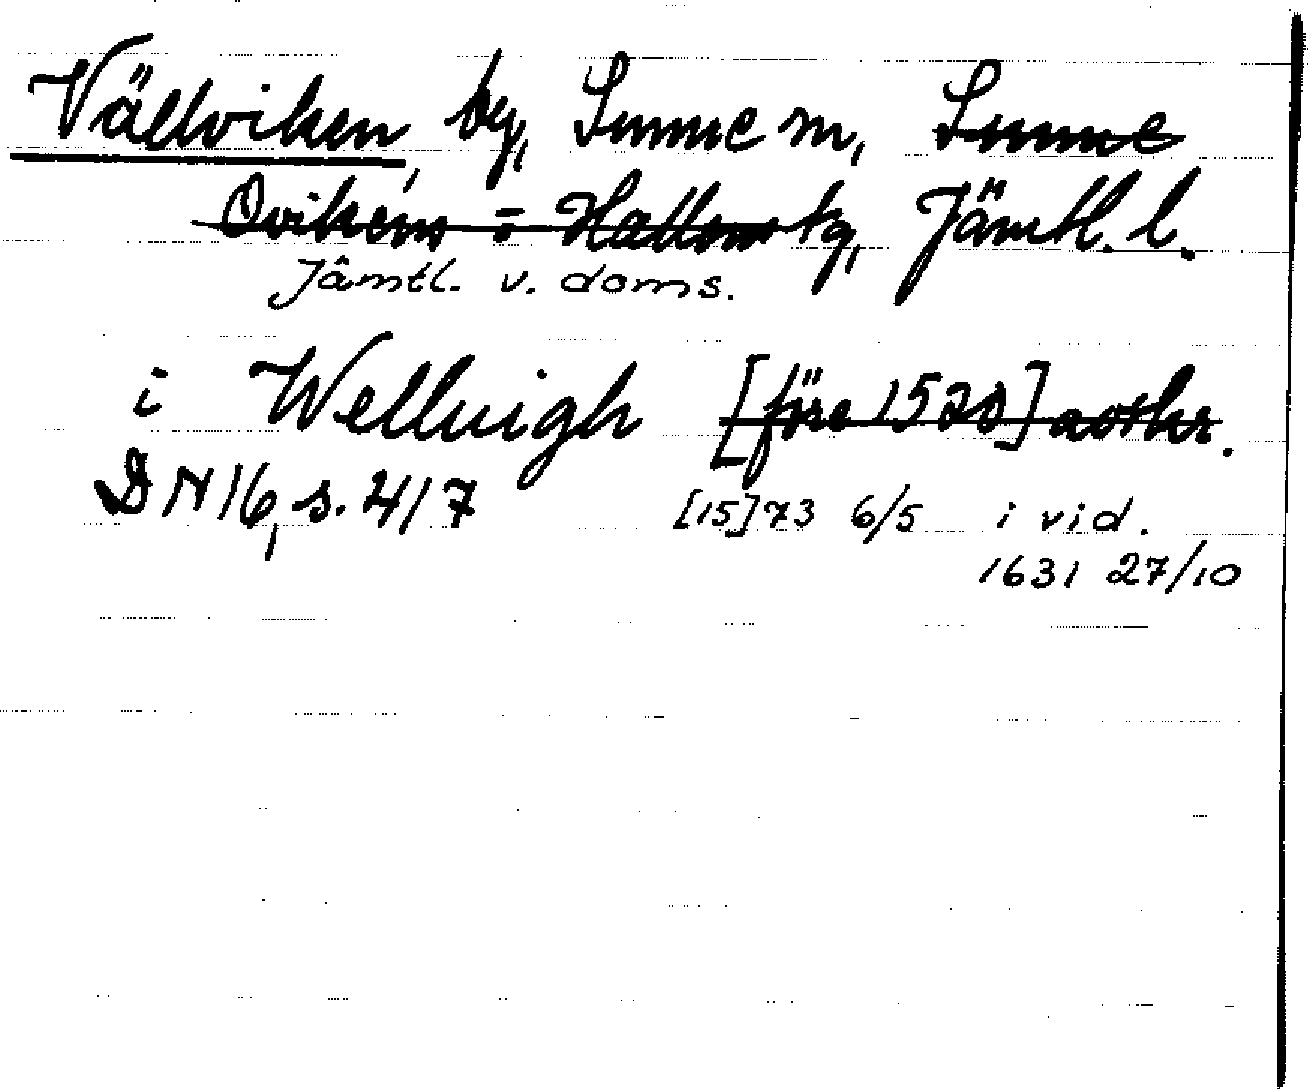 Vällviken, by, Sunne sn, Sunne
Ovikens o Hallens tg, Jämtl. l.
Jämtl. v. doms.
i Welluigh [före 1520] avskr.
DN 16, s. 417 [15]73 6/5 i vid.
1631 27/10